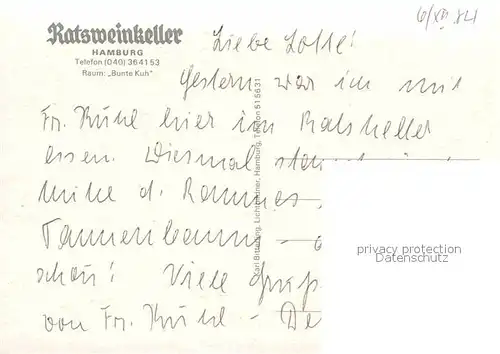 Ratsweinkeller
HAMBURG
Telefon (040) 364153
Raum: „Bunte Kuh"
6/XII 84
Liebe Lotte!
Gestern war ich mit
Fr. Kuhl hier im Ratskeller
essen. Diesmal
Mitte d. Raumes
Tannenbaum -
schön! Viele
von Fr. Kuhl -
Karl Bitterling, Lichtbildner, Hamburg, Telefon 51 56 31
privacy protection
Datenschutz